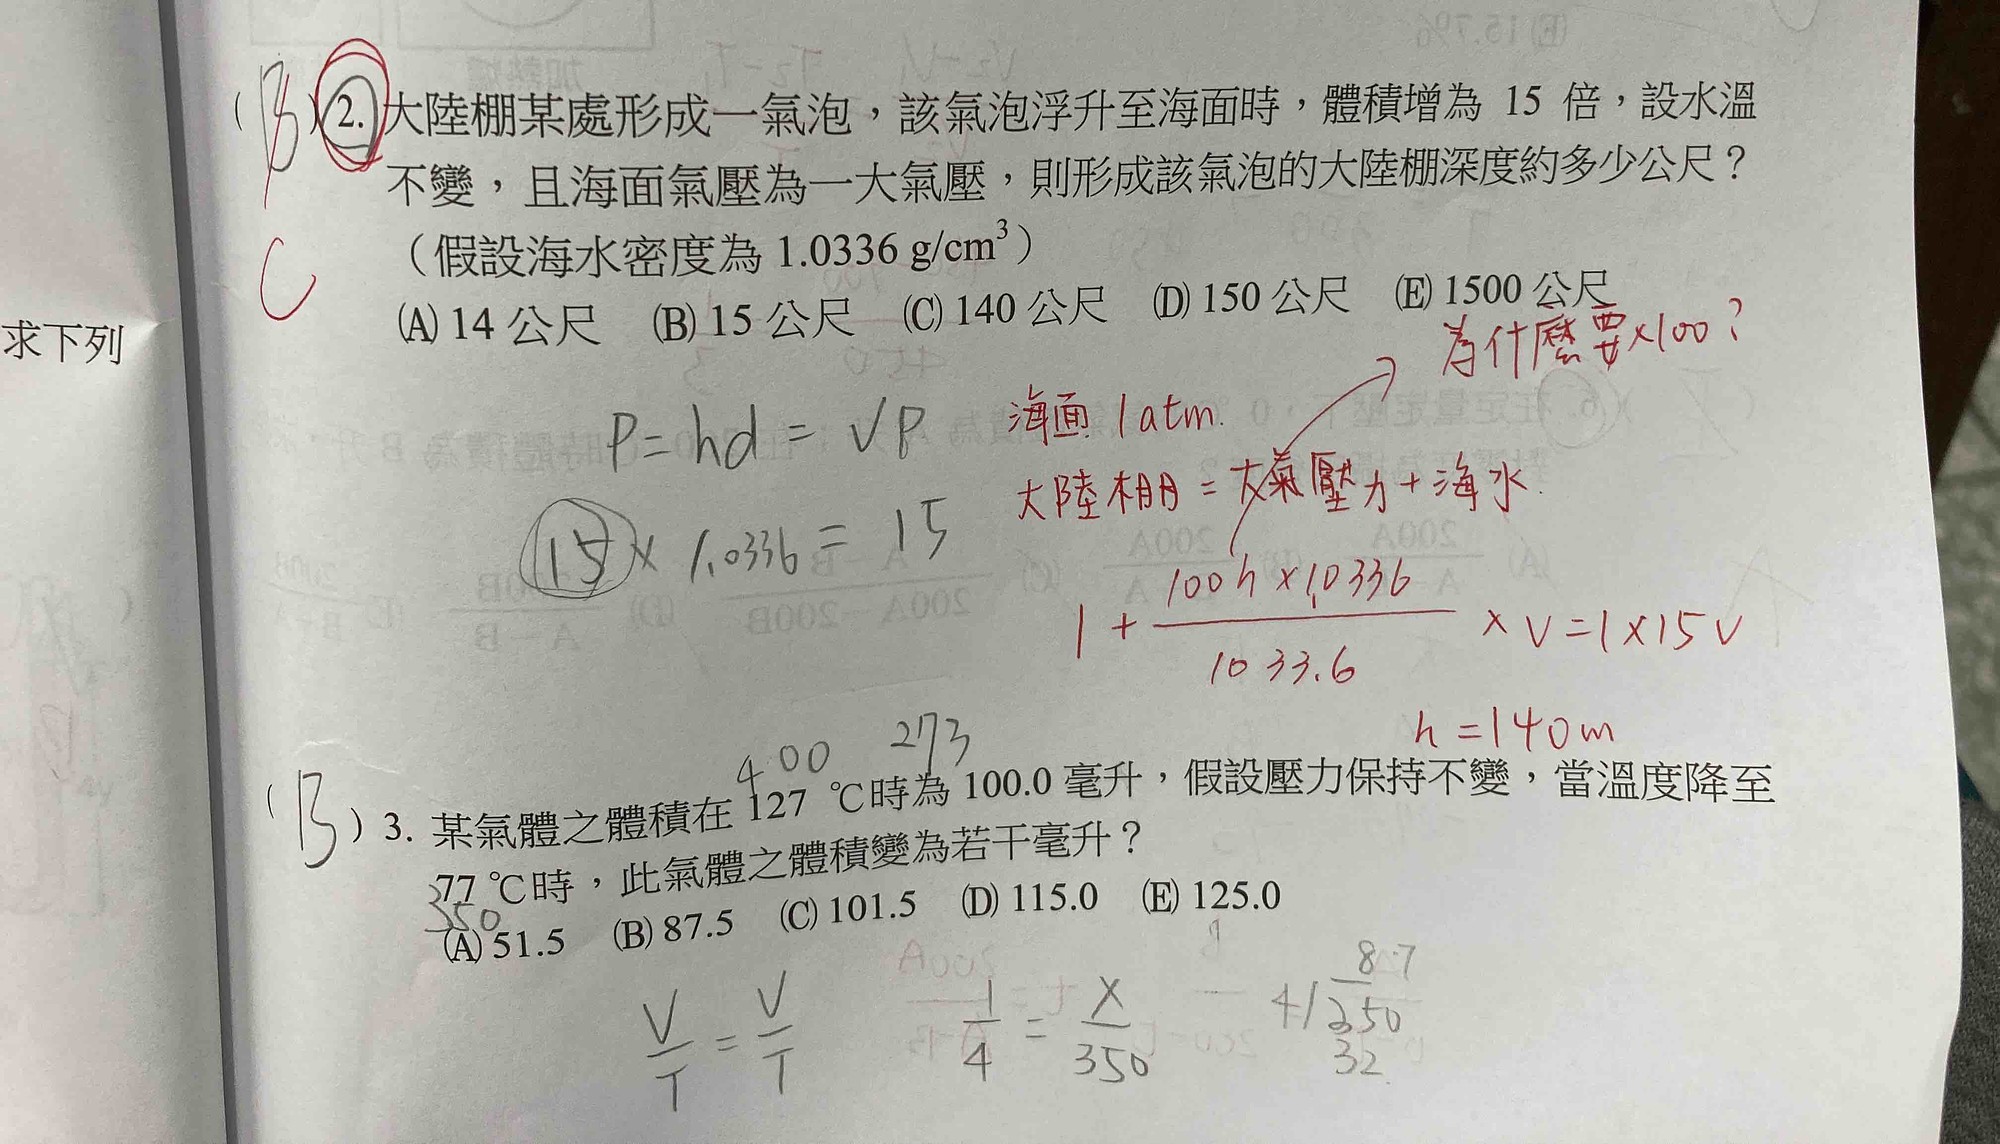 (B) 2. 大陸棚某處形成一氣泡，該氣泡浮升至海面時，體積增為 15 倍，設水溫
不變，且海面氣壓為一大氣壓，則形成該氣泡的大陸棚深度約多少公尺？
C
（假設海水密度為 1.0336 g/cm³）
(A) 14 公尺 (B) 15 公尺 (C) 140 公尺 (D) 150 公尺 (E) 1500 公尺
求下列
為什麼要×100？
P=hd=VP
海面 1atm.
大陸棚=大氣壓力+海水.
15 × 1.0336 = 15
1 + 100h×1.0336 / 1033.6 × V = 1×15V
h=140m
400 273
(B) 3. 某氣體之體積在 127 ℃時為 100.0 毫升，假設壓力保持不變，當溫度降至
77 ℃時，此氣體之體積變為若干毫升？
350
(A) 51.5 (B) 87.5 (C) 101.5 (D) 115.0 (E) 125.0
V/T = V/T
1/4 = X/350
8.7
4/350
32